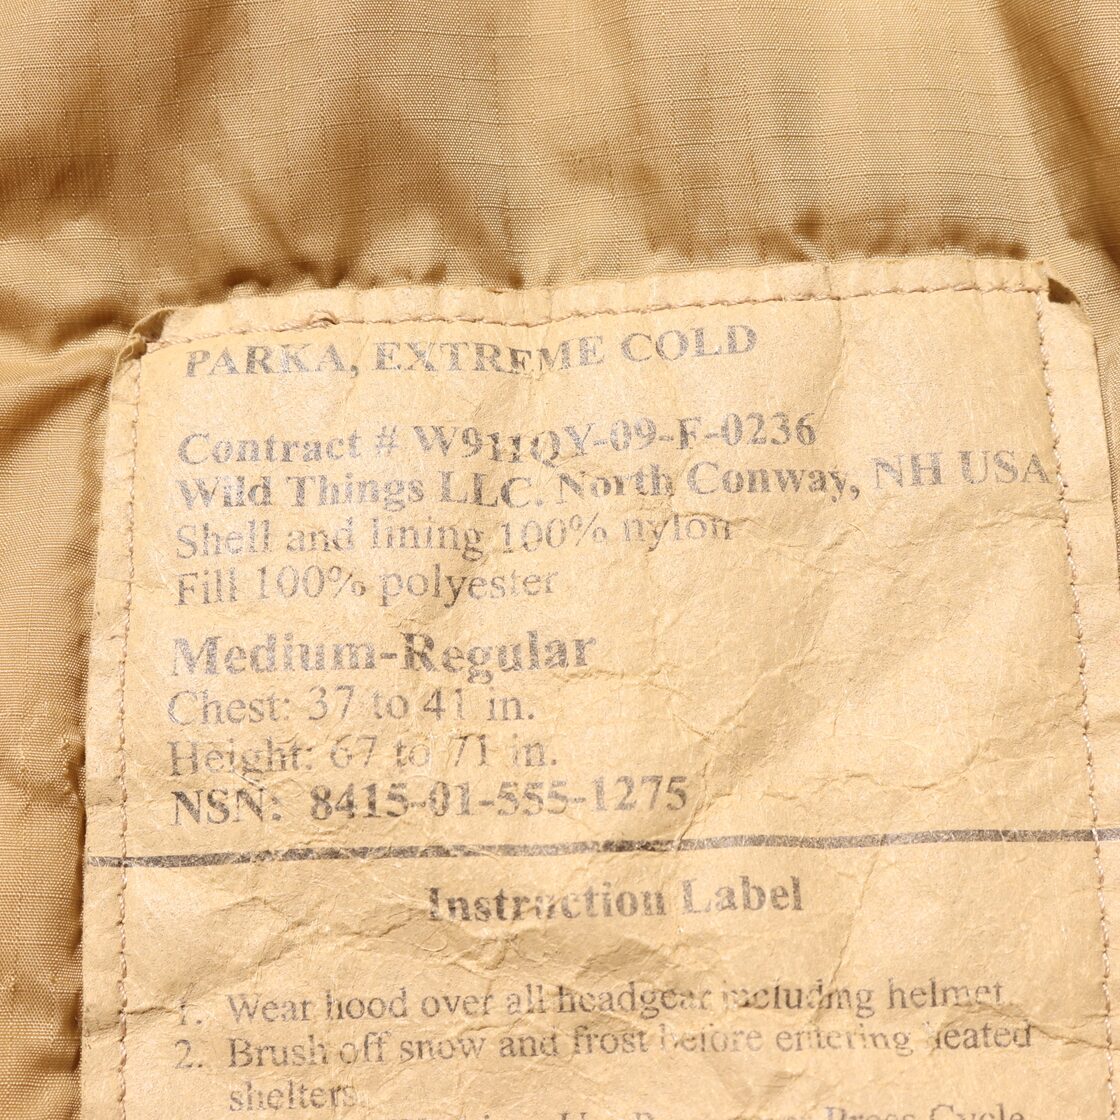 PARKA, EXTREME COLD
Contract # W911QY-09-F-0236
Wild Things LLC. North Conway, NH USA
Shell and lining 100% nylon
Fill 100% polyester
Medium-Regular
Chest: 37 to 41 in.
Height: 67 to 71 in.
NSN: 8415-01-555-1275
Instruction Label
1. Wear hood over all headgear including helmet
2. Brush off snow and frost before entering heated
shelters.
Press Cycle